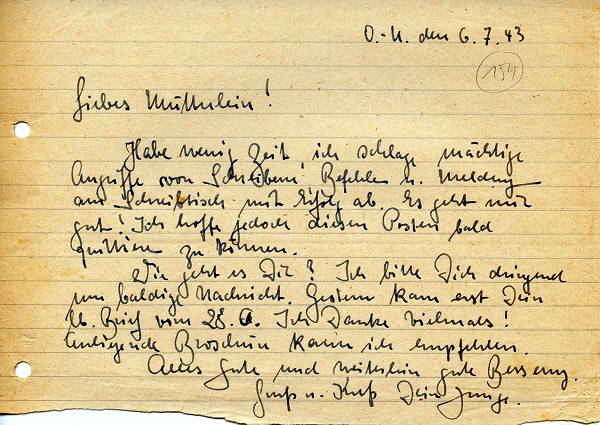 O.-U. den 6.7.43
154
Liebes Mütterlein!
Habe wenig Zeit, ich schlage mächtige
Angriffe von Schreiben, Befehlen u. Meldung
am Schreibtisch mit Erfolg ab. Es geht mir
gut! Ich hoffe jedoch diesen Posten bald
quittieren zu können.
Wie geht es Dir? Ich bitte Dich dringend
um baldige Nachricht. Gestern kam erst Dein
lb. Brief vom 28. Ich Danke vielmals!
Anliegende Broschüre kann ich empfehlen.
Alles Gute und weiterhin gute Besserung.
Gruß u. Kuß Dein Junge.